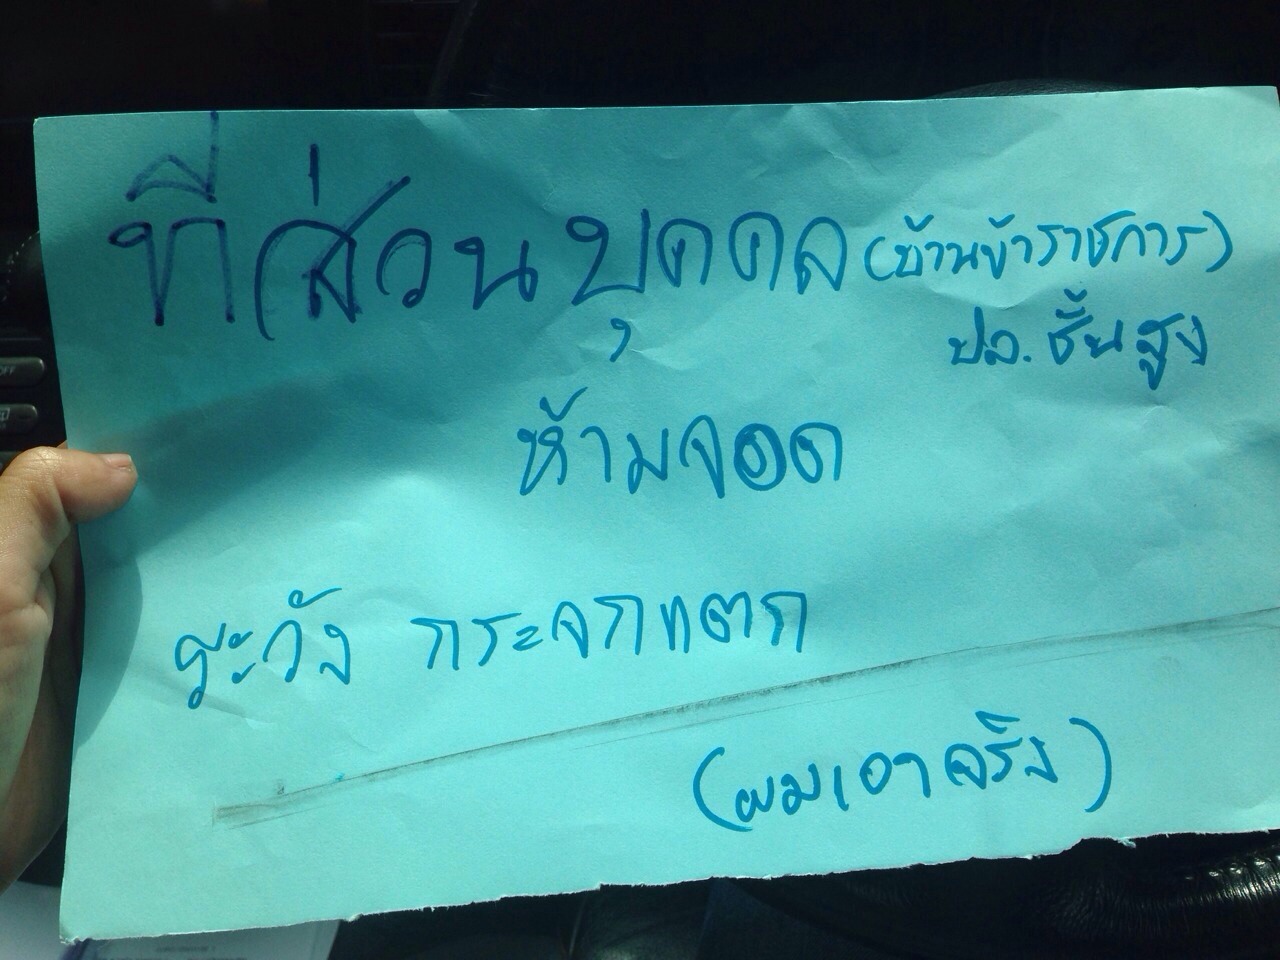 ที่ส่วนบุคคล (บ้านข้าราชการ)
ปล. ชั้นสูง
ห้ามจอด
ระวัง กระจกแตก
(ผมเอาจริง)